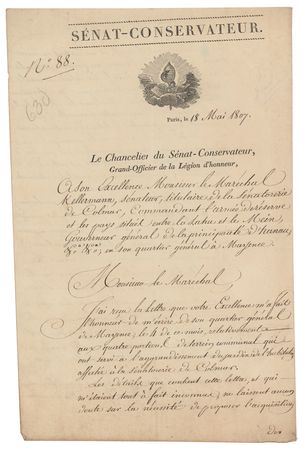 SÉNAT-CONSERVATEUR.
N.º 88.
630
Paris, le 18 Mai 1807.
Le Chancelier du Sénat-Conservateur,
Grand-Officier de la Légion d'honneur,
A Son Excellence Monsieur le Maréchal
Kellermann, Sénateur, titulaire de la Sénatorerie
de Colmar, Commandant l'armée de réserve
et les pays situés entre la Sarre et le Mein,
Gouverneur général de la principauté d'hanau,
&ca &ca &ca, en son quartier général à Mayence.
Monsieur le Maréchal,
J'ai reçu la lettre que votre Excellence m'a fait
l'honneur de m'écrire de son quartier général
de Mayence, le 4 de ce mois, relativement
aux quatre portions de terrein communal qui
ont servi à l'agrandissement du jardin de l'
affecté à la Sénatorerie de Colmar.
Les détails que contient cette lettre, et qui
m'étaient tout à fait inconnus, ne laissent aucun
doute sur la nécessité de proposer l'acquisition
des